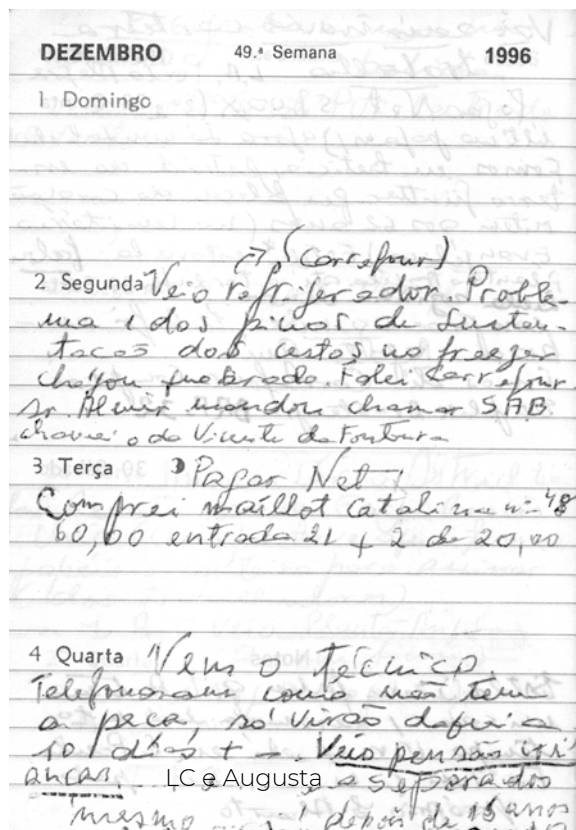 DEZEMBRO 49.ª Semana 1996
1 Domingo
(Carrefour)
2 Segunda Veio refrigerador Proble-
ma 1 dos pinos de susten-
tacao dos cestos no freezer
chegou quebrado. Falei Carrefour
sr. Almir mandou chamar SAB
chamei o da Vicente da Fontoura
3 Terça Pagar Net
Comprei maillot catalina nº 48
60,00 entrada 21 + 2 de 20,00
4 Quarta Vem o técnico.
Telefonaram como não tem
a peça, só virão daqui a
10 dias + -. Veio pensão cri
anças. LC e Augusta separados
mesmo depois de 15 anos